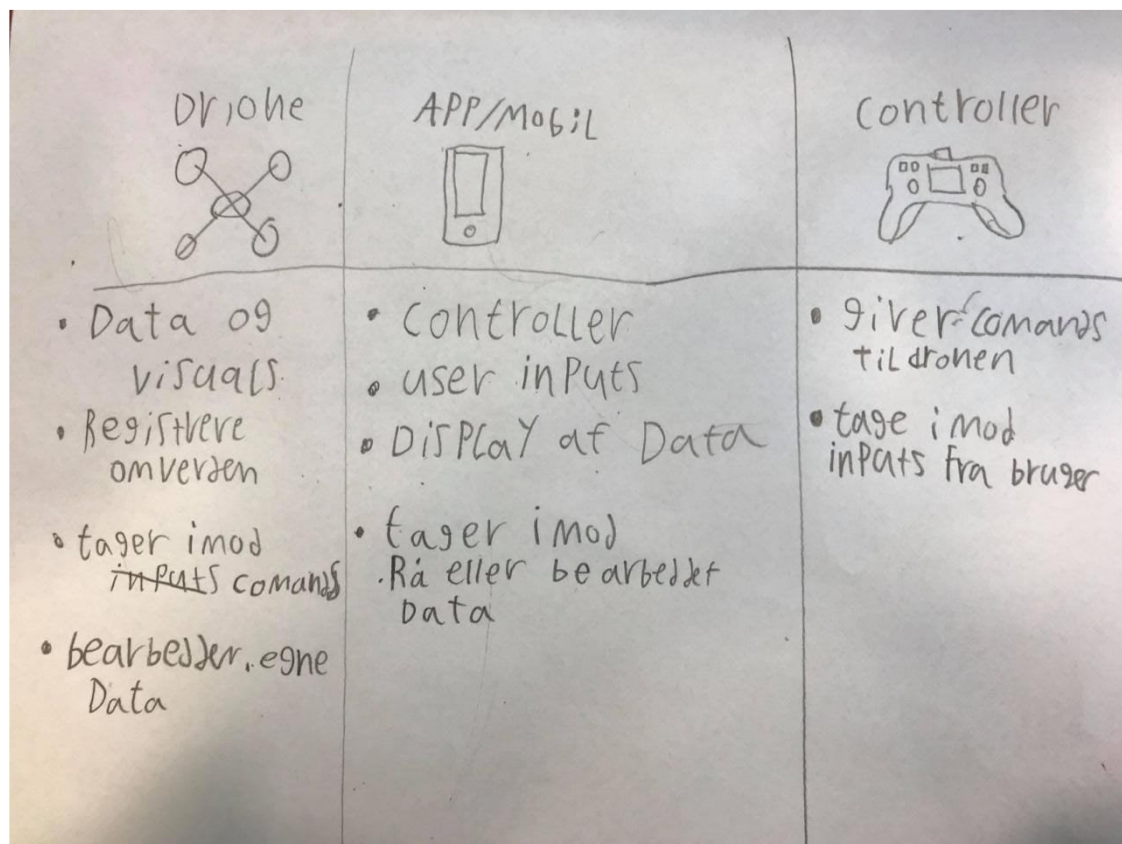 Drone
• Data og
visuals.
• Registrere
omverden
• tager imod
inputs comands
• bearbejder egne
Data
APP/MobiL
• Controller
• user inputs
• DISPLAY af Data
• tager imod
Rå eller bearbejdet
Data
Controller
• giver comands
til dronen
• tage imod
inputs fra bruger